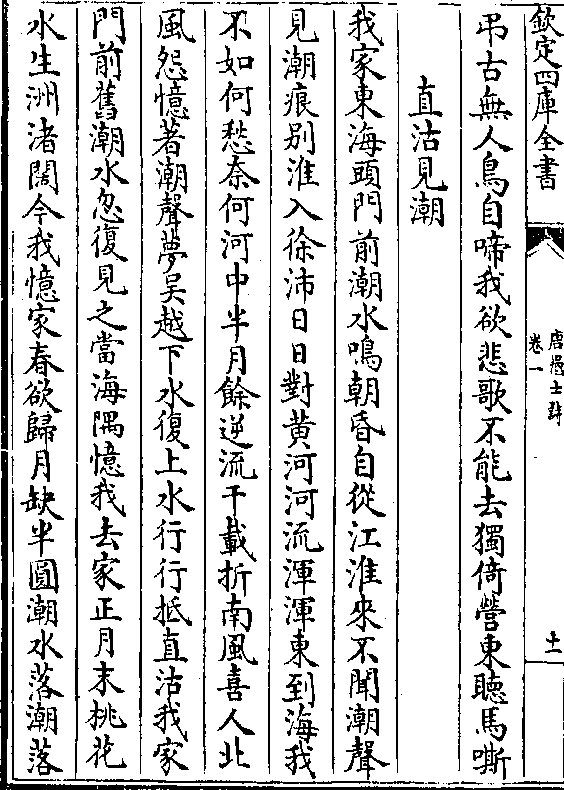 欽定四庫全書
唐愚士詩
卷一
十一
弔古無人鳥自啼我欲悲歌不能去獨倚營東聽馬嘶
直沽見潮
我家東海頭門前潮水鳴朝昏自從江淮來不聞潮聲
見潮痕别淮入徐沛日日對黃河河流渾渾東到海我
不如何愁奈何河中半月餘逆流千載折南風喜人北
風怨憶著潮聲夢吳越下水復上水行行抵直沽我家
門前舊潮水忽復見之當海隅憶我去家正月末桃花
水生洲渚闊今我憶家春欲歸月缺半圓潮水落潮落